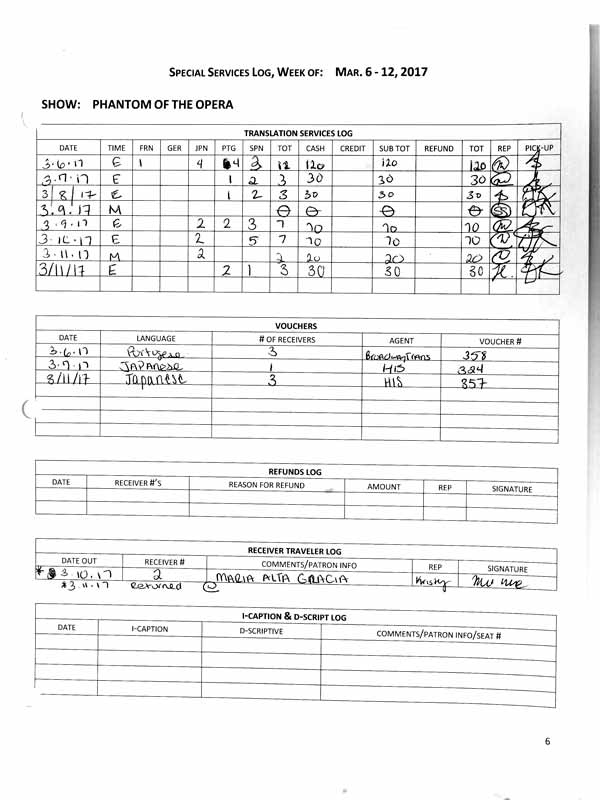 SPECIAL SERVICES LOG, WEEK OF: MAR. 6 - 12, 2017
SHOW: PHANTOM OF THE OPERA
TRANSLATION SERVICES LOG
DATE TIME FRN GER JPN PTG SPN TOT CASH CREDIT SUB TOT REFUND TOT REP PICK-UP
3.6.17 E 1 4 4 3 12 120 120 120
3.7.17 E 1 2 3 30 30 30
3/8/17 E 1 2 3 30 30 30
3.9.17 M
3.9.17 E 2 2 3 7 70 70 70
3.10.17 E 2 5 7 70 70 70
3.11.17 M 2 2 20 20 20
3/11/17 E 2 1 3 30 30 30
VOUCHERS
DATE LANGUAGE # OF RECEIVERS AGENT VOUCHER #
3.6.17 Portugese 3 BroadwayTrans 358
3.9.17 JAPANese 1 HIS 324
3/11/17 Japanese 3 HIS 357
REFUNDS LOG
DATE RECEIVER #'S REASON FOR REFUND AMOUNT REP SIGNATURE
RECEIVER TRAVELER LOG
DATE OUT RECEIVER # COMMENTS/PATRON INFO REP SIGNATURE
* 3.10.17 2 MARIA ALTA GRACIA Kristy
*3.11.17 Returned
I-CAPTION & D-SCRIPT LOG
DATE I-CAPTION D-SCRIPTIVE COMMENTS/PATRON INFO/SEAT #
6